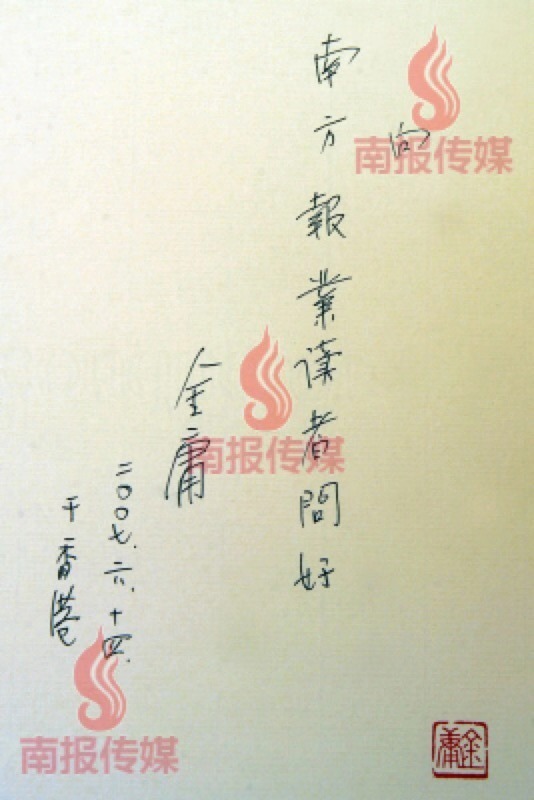 向
南方報業读者問好
金庸
二〇〇七.六.十四.
于香港
金庸
南报传媒
南报传媒
南报传媒